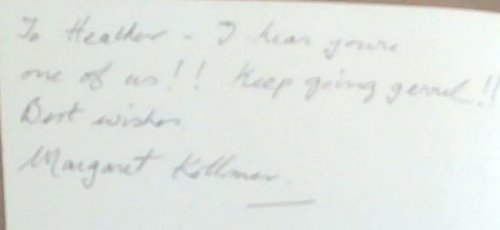 To Heather - I hear you're
one of us!! Keep going !!
Best wishes
Margaret Kollmer